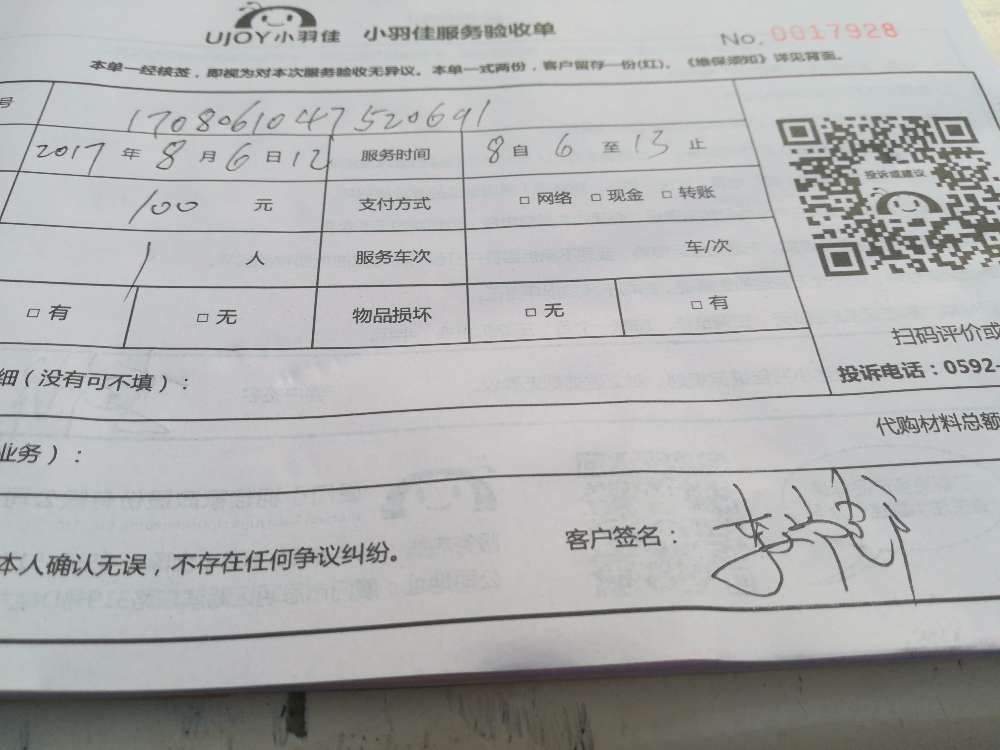 UJOY小羽佳 小羽佳服务验收单
No. 0017928
本单一经核签，即视为对本次服务验收无异议。本单一式两份，客户留存一份(红)。《维保须知》详见背面。
号 170806104752069​1
2017 年 8 月 6 日 12 服务时间 8 自 6 至 13 止
100 元 支付方式 □ 网络 □ 现金 □ 转账
1 人 服务车次 车/次
□ 有 □ 无 物品损坏 □ 无 □ 有
投诉或建议
扫码评价或
投诉电话：0592-
细（没有可不填）：
代购材料总额
业务）：
本人确认无误，不存在任何争议纠纷。
客户签名：